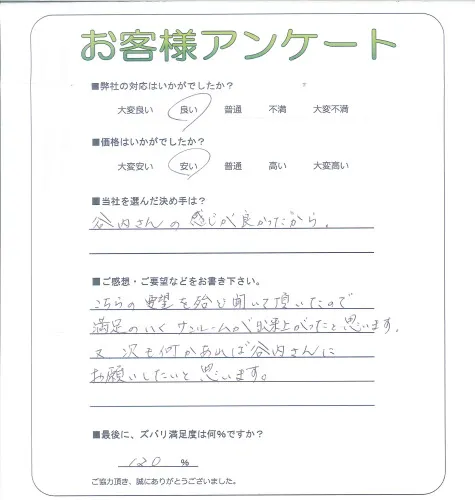 お客様アンケート
■弊社の対応はいかがでしたか？
大変良い 良い 普通 不満 大変不満
■価格はいかがでしたか？
大変安い 安い 普通 高い 大変高い
■当社を選んだ決め手は？
谷内さんの感じが良かったから。
■ご感想・ご要望などをお書き下さい。
こちらの要望を殆ど聞いて頂いたので
満足のいくサンルームが出来上がったと思います。
又、次も何かあれば谷内さんに
お願いしたいと思います。
■最後に、ズバリ満足度は何％ですか？
120 ％
ご協力頂き、誠にありがとうございました。